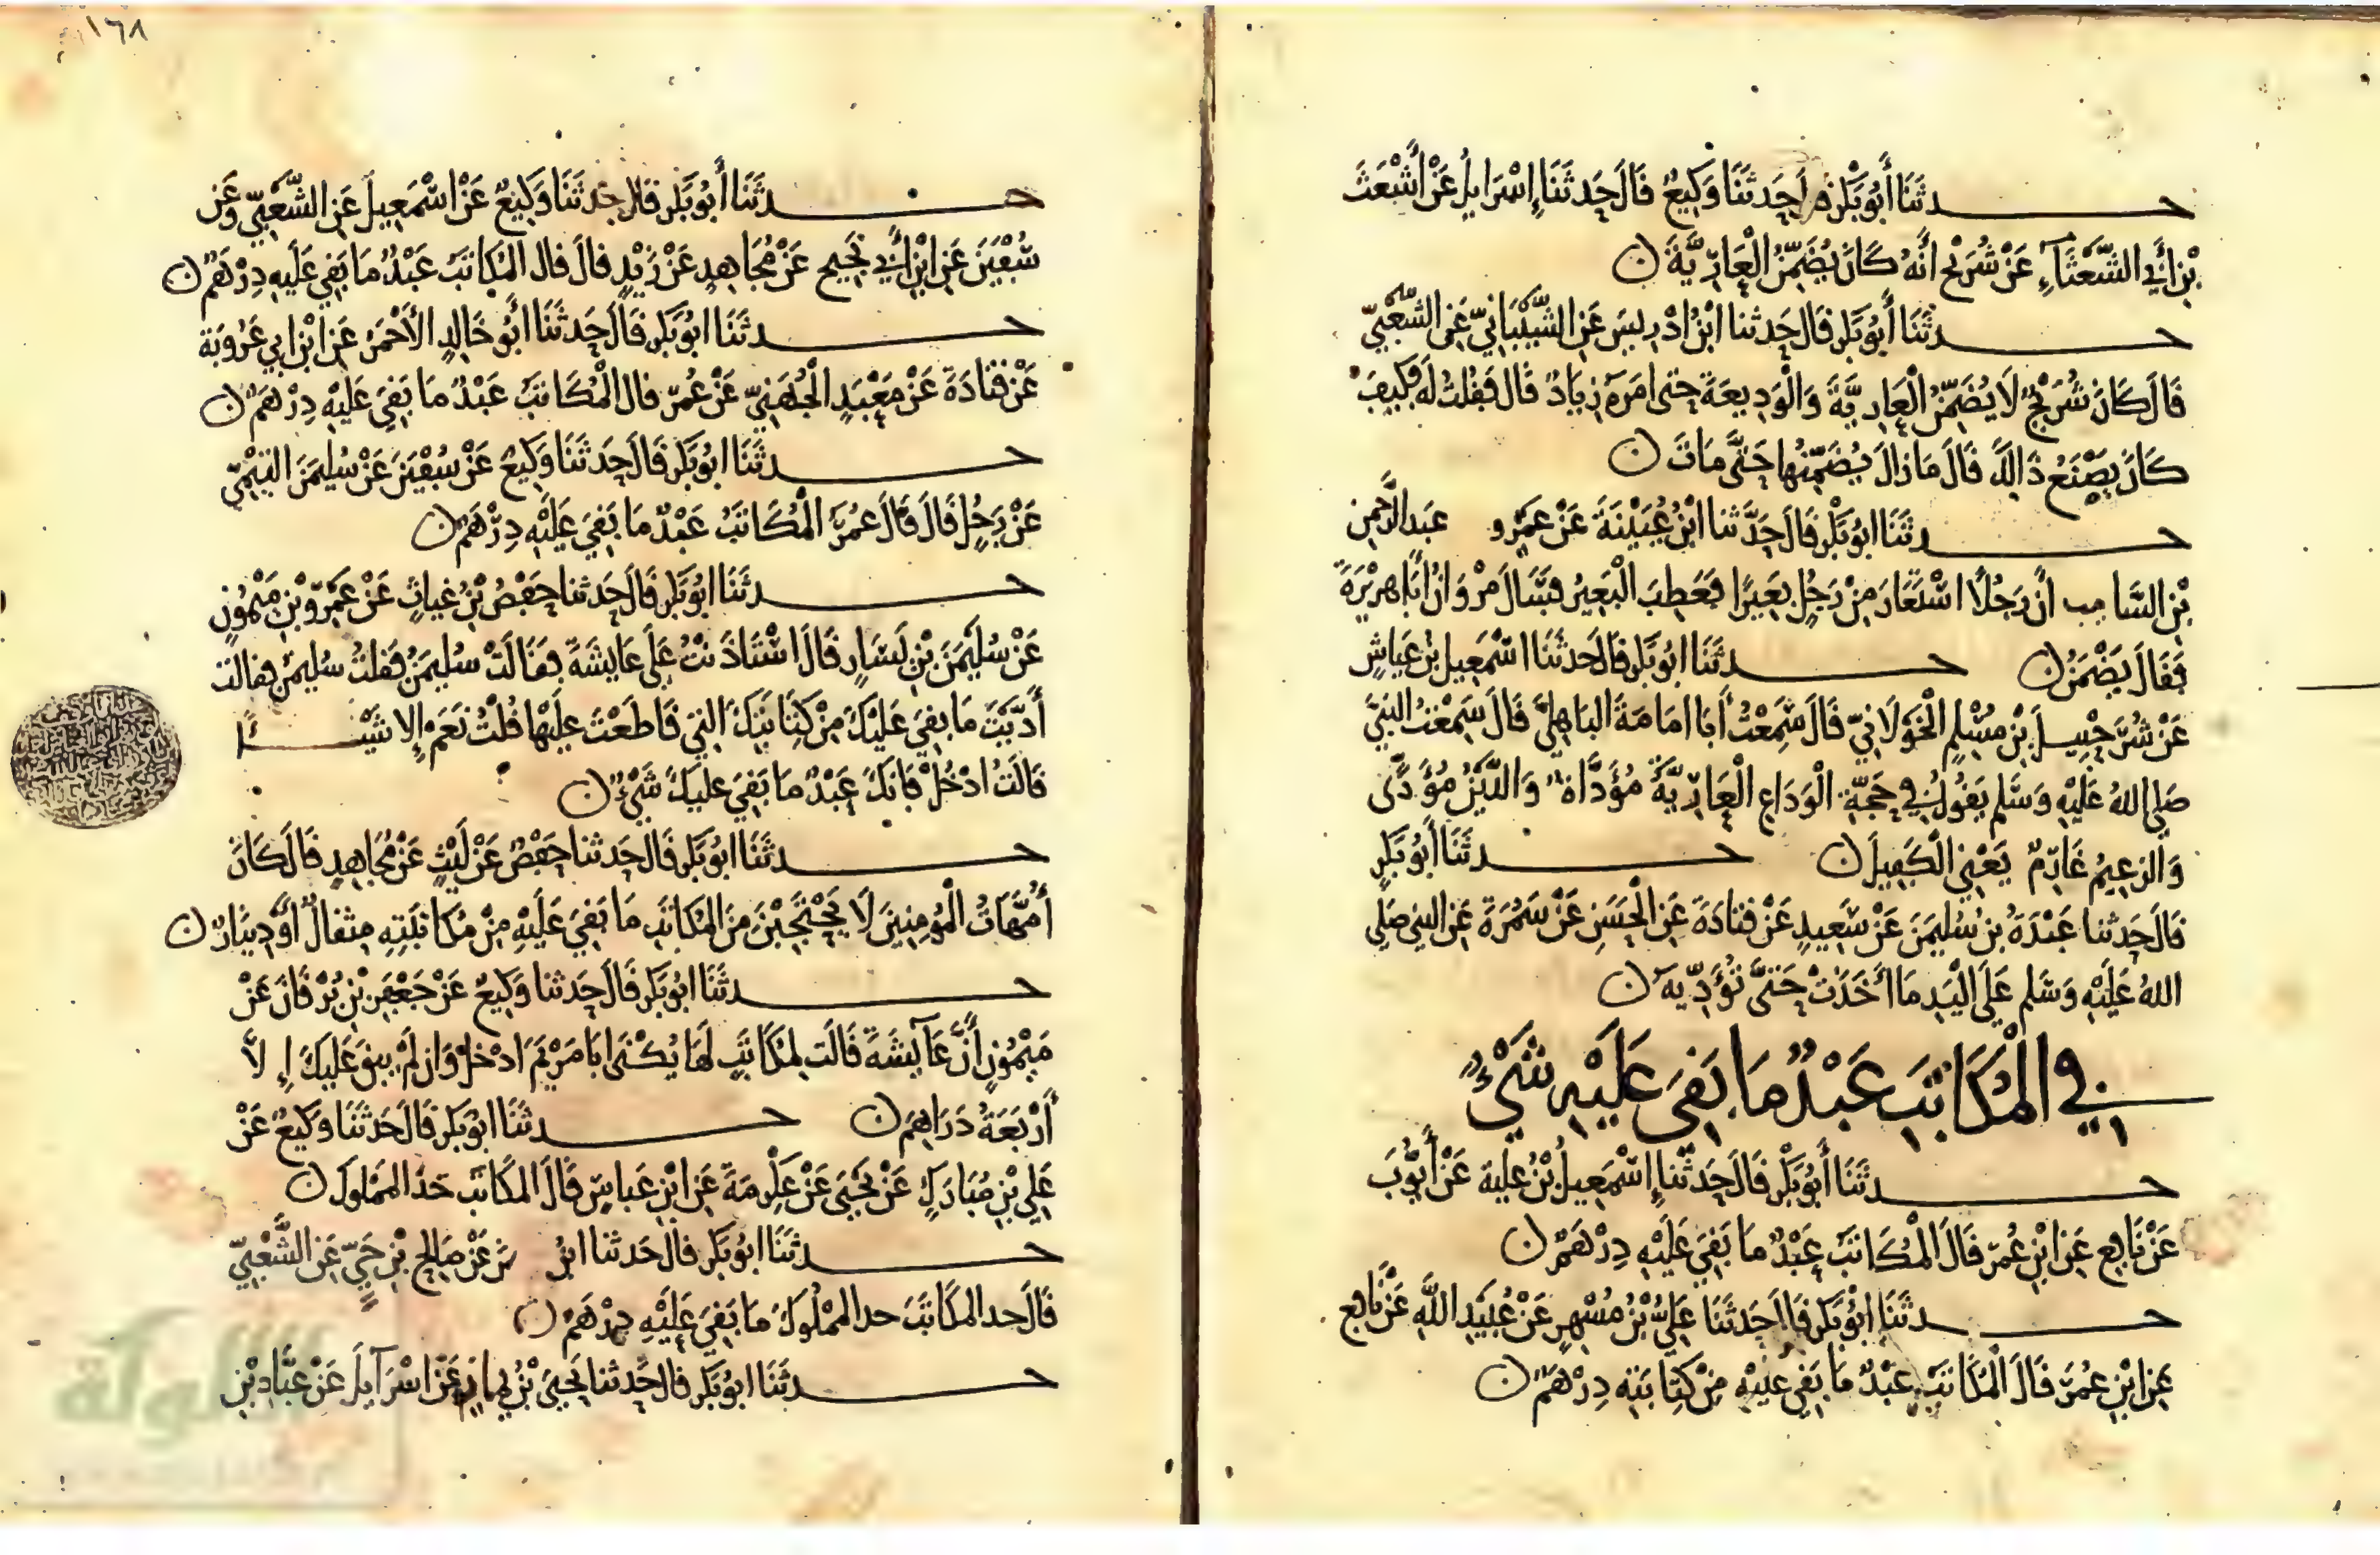 حدثنا أبو بكر قال حدثنا وكيع قال حدثنا إسرايل عن أشعث
بن أبي الشعثاء عن شريح أنه كان يضمن العارية
حدثنا أبو بكر قال حدثنا ابن ادريس عن الشيباني عن الشعبي
قال كان شريح لا يضمن العارية والوديعة حتى امره زياد قال فقلت له فكيف
كان يصنع ذالك قال ما زال يضمنها حتى مات
حدثنا ابو بكر قال حدثنا ابن عيينة عن عمرو عبد الرحمن
بن السايب ان رجلا استعار من رجل بعيرا فعطب البعير فسال مروان أبا هريرة
فقال يضمن حدثنا ابو بكر قال حدثنا اسمعيل بن عياش
عن شرحبيل بن مسلم الخولاني قال سمعت أبا امامة الباهلي قال سمعت النبي
صلى الله عليه وسلم يقول في حجة الوداع العارية مؤداة والدين مؤدى
والزعيم غارم يعني الكفيل حدثنا أبو بكر
قال حدثنا عبدة بن سليمن عن سعيد عن قتادة عن الحسن عن سمرة عن النبي صلى
الله عليه وسلم على اليد ما أخذت حتى تؤديه
في المكاتب عبد ما بقي عليه شيء
حدثنا أبو بكر قال حدثنا إسمعيل بن علية عن أيوب
عن نافع عن ابن عمر قال المكاتب عبد ما بقي عليه درهم
حدثنا ابو بكر قال حدثنا علي بن مسهر عن عبيد الله عن نافع
عن ابن عمر قال المكاتب عبد ما بقي عليه من كتابته درهم
١٦٨
حدثنا أبو بكر قال حدثنا وكيع عن اسمعيل عن الشعبي وعن
سفين عن ابن أبي نجيح عن مجاهد عن زيد قال قال المكاتب عبد ما بقي عليه درهم
حدثنا ابو بكر قال حدثنا أبو خالد الأحمر عن ابن ابي عروبة
عن قتادة عن معبد الجهني عن عمر قال المكاتب عبد ما بقي عليه درهم
حدثنا ابو بكر قال حدثنا وكيع عن سفين عن سليمن التيمي
عن رجل قال قال عمر المكاتب عبد ما بقي عليه درهم
حدثنا ابو بكر قال حدثنا حفص بن غياث عن عمرو بن ميمون
عن سليمن بن يسار قال استاذنت على عايشة فقالت سليمن فقلت سليمن فقالت
أديت ما بقي عليك من كتابتك التي قاطعت عليها قلت نعم إلا شيئا
قالت ادخل فانك عبد ما بقي عليك شيء
حدثنا ابو بكر قال حدثنا حفص عن ليث عن مجاهد قال كان
أمهات المومنين لا يحتجبن من المكاتب ما بقي عليه من مكاتبته مثقال او دينار
حدثنا ابو بكر قال حدثنا وكيع عن جعفر بن برقان عن
ميمون أن عايشة قالت لمكاتب لها يكنى ابا مريم ادخل وان لم يبق عليك إلا
أربعة دراهم حدثنا ابو بكر قال حدثنا وكيع عن
علي بن مبارك عن يحيى عن عكرمة عن ابن عباس قال المكاتب حد المملوك
حدثنا ابو بكر قال حدثنا ابن عن صالح بن حي عن الشعبي
قال حد المكاتب حد المملوك ما بقي عليه درهم
حدثنا ابو بكر قال حدثنا يحيى بن يمان عن اسرايل عن عباد بن
الألوكة